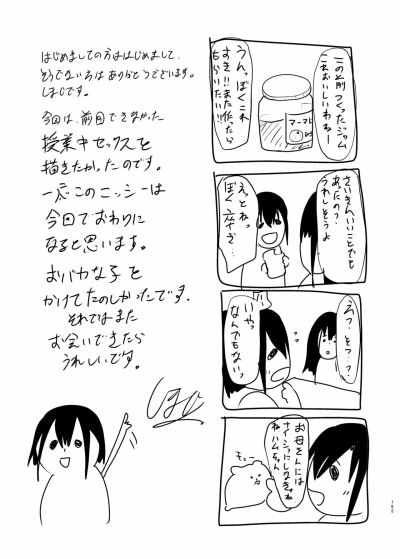 はじめましての方ははじめまして、
そうでない方はありがとうございます。
しおじです。
今回は、前回できなかった
授業中セックスを
描きたかったのです。
このニッシーは
今回でおわりに
なると思います。
おバカな子を
かけてたのしかったです。
それではまた
お会いできたら
うれしいです。
この前つくったジャム
おいしいわねー
うんっぼくこれ
すき!!また作ったら
もらいたい!!
マーマレ
さいきんいいことでも
あったの?
うれしそうよ
えっとね
ぼく
え?そっ…?
いやっ
なんでもない
お母さんには
ナイショにしなきゃ
ねハムちゃん
キュー
165